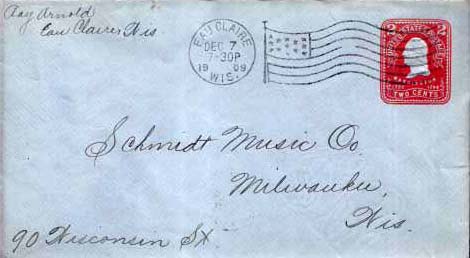 Ray Arnold
Eau Claire, Wis
EAU CLAIRE
DEC 7
7-30P
19 09
WIS.
2 2
UNITED STATES POSTAGE
WASHINGTON
TWO CENTS
Schmidt Music Co.
Milwaukee,
Wis.
90 Wisconsin St.